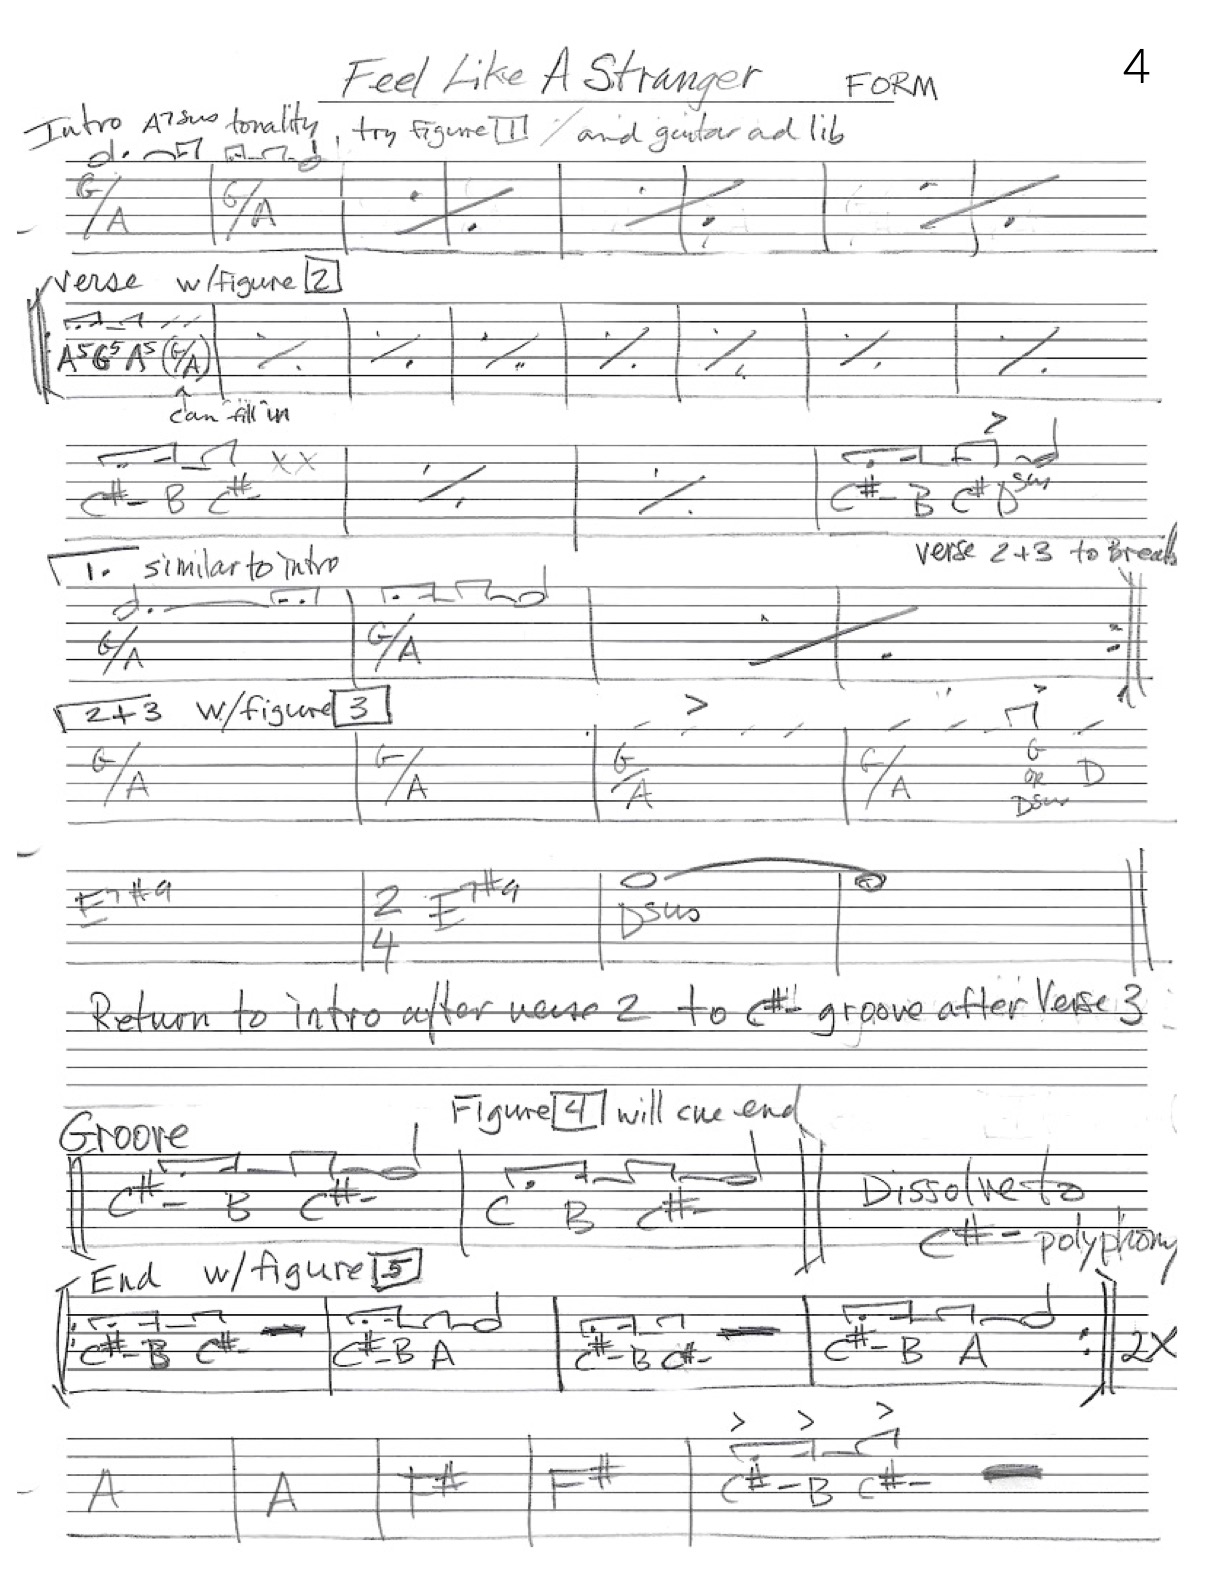 4
Feel Like A Stranger FORM
Intro A7sus tonality, try figure 1 / and guitar ad lib
G/A G/A
Verse w/figure 2
A5 G5 A5 (G/A)
can "fill" in
C#- B C#-
C#- B C# Dsus
verse 2+3 to Break
1. similar to intro
G/A G/A
2+3 w/figure 3
G/A G/A G/A G/A G or Dsus D
E7#9 2/4 E7#9 Dsus
Return to intro after verse 2 to C#- groove after Verse 3
Figure 4 will cue end
Groove
C#- B C#- C B C#- Dissolve to
C#- polyphony
End w/figure 5
C#- B C#- C#- B A C#- B C#- C#- B A 2X
A A F# F# C#- B C#-